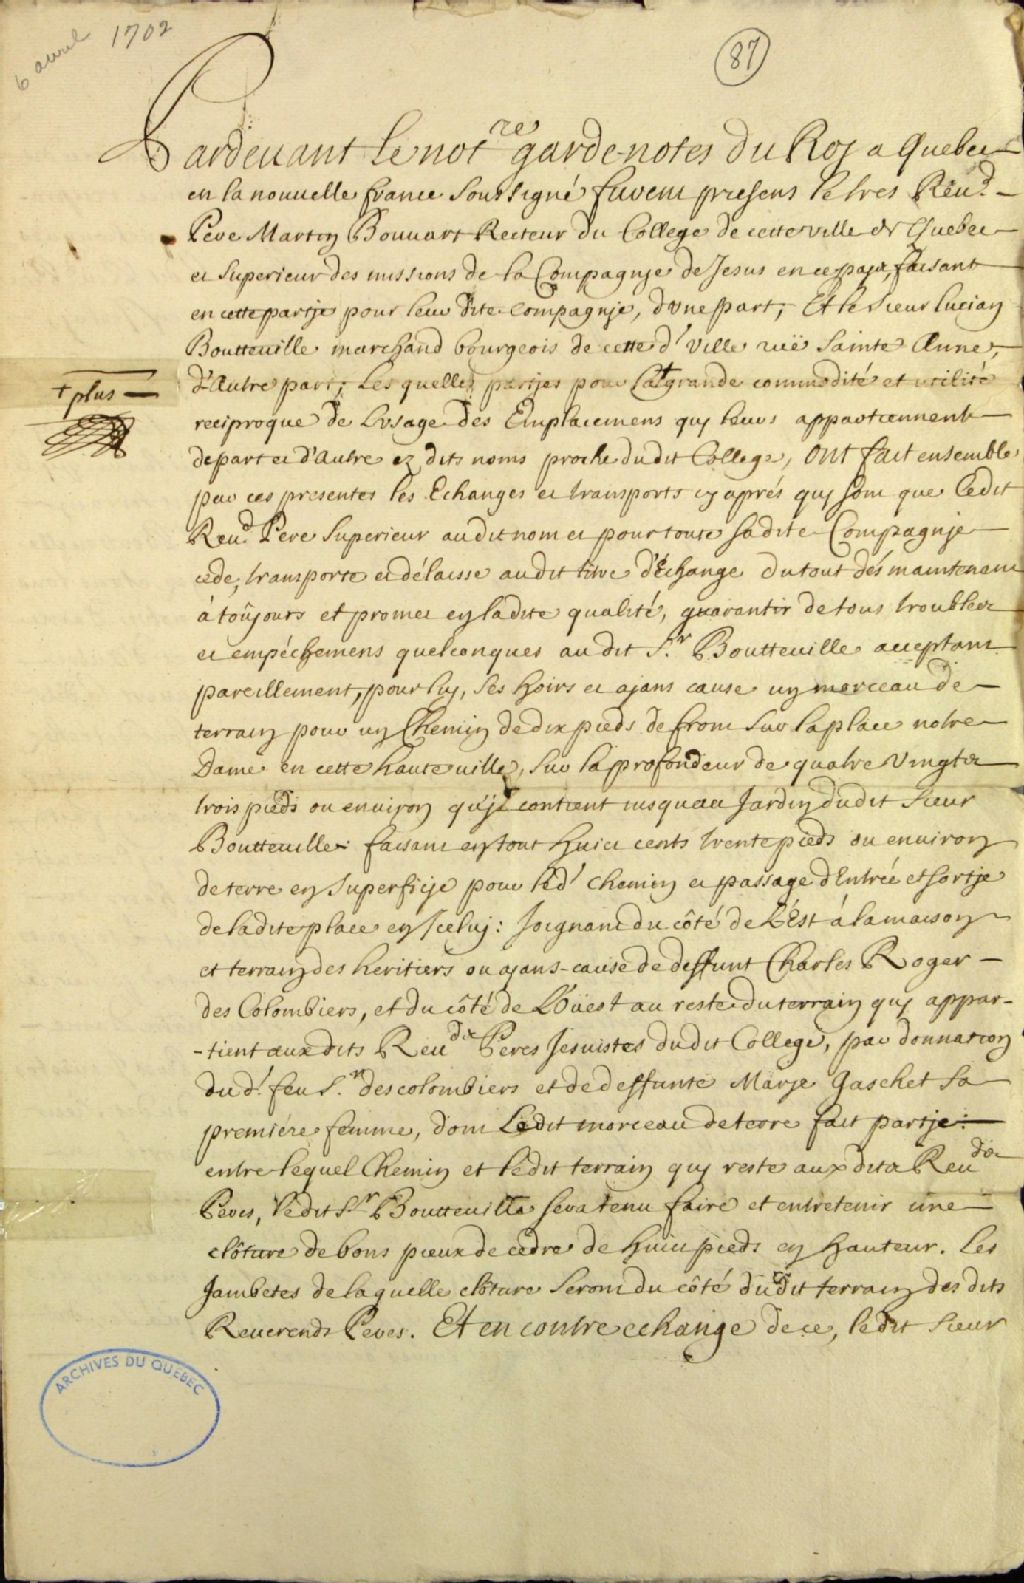 6 avril 1702
87
Pardevant le not.re garde-notes du Roy a Quebec
en la nouvelle france soussigné furent presens le tres Reu.d
Pere Martin Bouuart Recteur du College de cette ville de Quebec
et Superieur des missions de la Compagnje de Jesus en ce pays, faisant
en cette partje pour leur dite Compagnje, d'vne part; Et le Sieur lucian
Boutteuille marchand bourgeois de cette d.' ville ruë Sainte Anne,
d'Autre part; Lesquelles partjes pour la + grande commodité et utilité
+ plus
reciproque de l'vsage des Emplacemens quj leurs appartiennent
de part et d'Autre ez dits noms proche dudit College, Ont fait ensemble
par ces presentes les Echanges et transports cy aprés quj sont que Ledit
Reu.d Pere Superieur audit nom et pour toute sadite Compagnje
cede, transporte et délaisse audit titre d'Echange du tout dés maintenant
à toûjours et promet en ladite qualité, guarantir de tous troubles
et empéchemens quelconques audit S.r Boutteuille acceptant
pareillement, pour luy, ses hoirs et ajans cause un morceau de
terrain pour un Chemin de dix pieds de front sur la place notre
Dame en cette haute ville, sur la profondeur de quatre vingts
trois pieds ou environ qu'jl contient jusqu'au Jardin dudit Sieur
Boutteuille faisant en tout huict cents trente pieds ou environ
de terre en superficje pour led.' chemin et passage d'Entrée et sortje
de ladite place en Iceluj: Joignant du côté de L'Est à la maison
et terrain des heritiers ou ajans-cause de deffunt Charles Roger
des Colombiers, et du côté de L'Oüest au reste du terrain quj appar-
-tient aux dits Reu.ds Peres Jesuistes dudit College, par donnation
du d.' feu S.r descolombiers et de deffunte Marje Gaschet sa
premiére femme, dont Ledit morceau de terre fait partje:
entre lequel Chemin et ledit terrain quj reste aux dits Reu.ds
Peres, ledit S.r Boutteuille sera tenu faire et entretenir une
clôture de bons pieux de cedre de huict pieds en hauteur. Les
Jambetes de laquelle clôture seront du côté dudit terrain des dits
Reuerends Peres. Et en contre echange de ce, ledit Sieur
ARCHIVES DU QUÉBEC